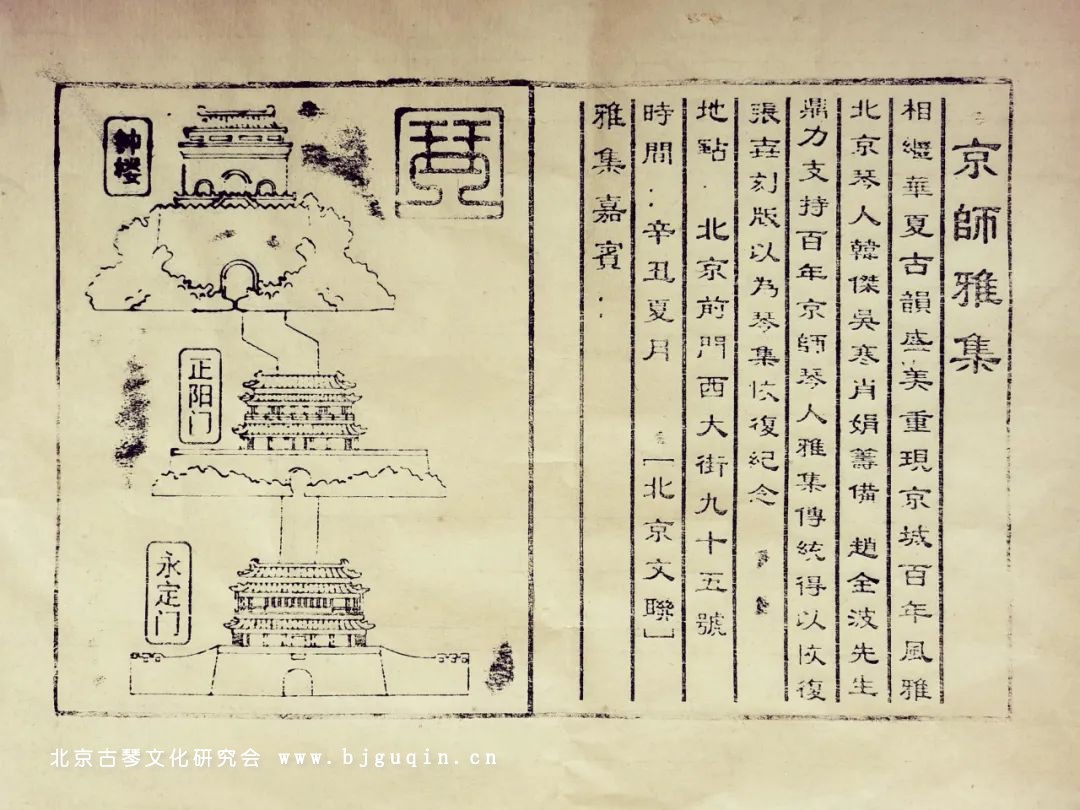 京師雅集
相繼華夏古韻盛美重現京城百年風雅
北京琴人韓傑吳寒肖娟籌備 趙金波先生
鼎力支持百年京師琴人雅集傳統得以恢復
張垚刻版以為琴集恢復紀念
地點：北京前門西大街九十五號
時間：辛丑夏月 [北京文聯]
雅集嘉賓：
琴
钟楼
正阳门
永定门
北京古琴文化研究会 www.bjguqin.cn